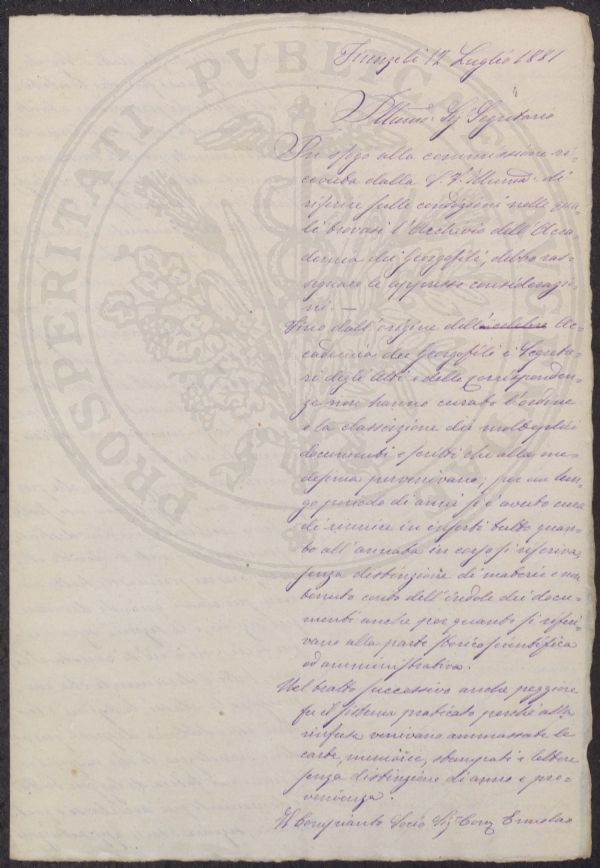 Firenze li 12 Luglio 1881
Illumo. Sig. Segretario
In sfogo alla commissione ri-
cevuta dalla S. V. Illuma. di
riferire sulle condizioni nelle qua-
li trovasi l'Archivio dell'Acca-
demia dei Georgofili, debbo ras-
segnare le appresso considerazio-
ni. —
Sino dall'origine dell' celebre Ac-
cademia dei Georgofili i Segreta-
ri degli Atti e delle corrisponden-
ze non hanno curato l'ordine
e la classazione dei molteplici
documenti e scritti che alla me-
desima pervenivano; per un lun-
go periodo di anni si è avuto cura
di riunire in inserti tutto quan-
to all'annata in corso si riferiva,
senza distinzione di materie e non
tenuto conto dell'indole dei docu-
menti anche per quando si riferi-
vano alla parte storico scientifica
od amministrativa.
Nel tratto successivo anche peggiore
fu il sistema praticato perchè alla
rinfusa venivano ammassate le
carte, memorie, stampati e lettere
senza distinzione di anno e pro-
venienza.
Il Compianto Socio Sig. Ermolao